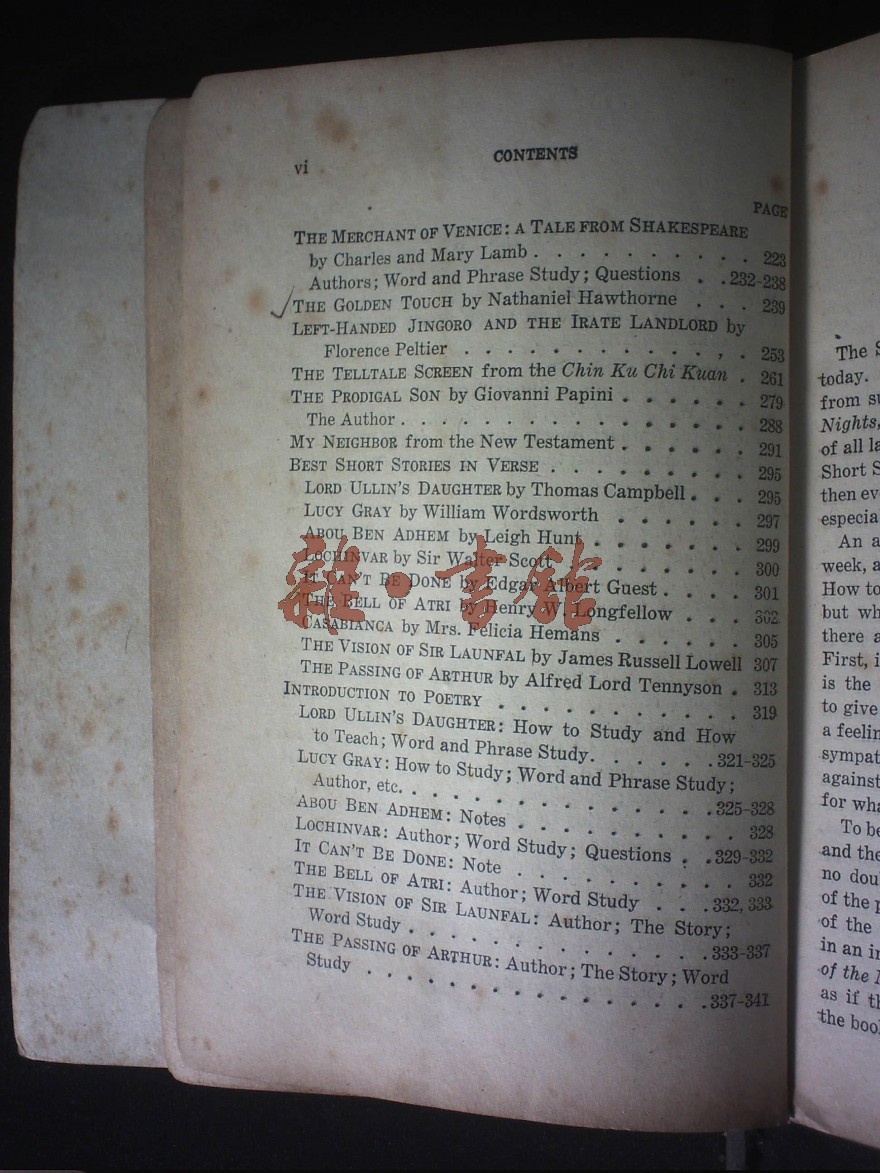 vi
CONTENTS
PAGE
THE MERCHANT OF VENICE: A TALE FROM SHAKESPEARE
by Charles and Mary Lamb . . . . . . . . . . 223
Authors; Word and Phrase Study; Questions . . 232-238
THE GOLDEN TOUCH by Nathaniel Hawthorne . . . 239
LEFT-HANDED JINGORO AND THE IRATE LANDLORD by
Florence Peltier . . . . . . . . . . . . . 253
THE TELLTALE SCREEN from the Chin Ku Chi Kuan . 261
THE PRODIGAL SON by Giovanni Papini . . . . . . 279
The Author . . . . . . . . . . . . . . . 288
MY NEIGHBOR from the New Testament . . . . . . 291
BEST SHORT STORIES IN VERSE . . . . . . . . . 295
LORD ULLIN'S DAUGHTER by Thomas Campbell . . . 295
LUCY GRAY by William Wordsworth . . . . . . 297
ABOU BEN ADHEM by Leigh Hunt . . . . . . . 299
LOCHINVAR by Sir Walter Scott . . . . . . . . 300
IT CAN'T BE DONE by Edgar Albert Guest . . . . 301
THE BELL OF ATRI by Henry W. Longfellow . . . 302
CASABIANCA by Mrs. Felicia Hemans . . . . . . 305
THE VISION OF SIR LAUNFAL by James Russell Lowell 307
THE PASSING OF ARTHUR by Alfred Lord Tennyson . 313
INTRODUCTION TO POETRY . . . . . . . . . . . 319
LORD ULLIN'S DAUGHTER: How to Study and How
to Teach; Word and Phrase Study . . . . . . 321-325
LUCY GRAY: How to Study; Word and Phrase Study;
Author, etc. . . . . . . . . . . . . . 325-328
ABOU BEN ADHEM: Notes . . . . . . . . . . 328
LOCHINVAR: Author; Word Study; Questions . . 329-332
IT CAN'T BE DONE: Note . . . . . . . . . . 332
THE BELL OF ATRI: Author; Word Study . . . 332, 333
THE VISION OF SIR LAUNFAL: Author; The Story;
Word Study . . . . . . . . . . . . . 333-337
THE PASSING OF ARTHUR: Author; The Story; Word
Study . . . . . . . . . . . . . . 337-341
雜·書館
The
today.
from
Nights,
of all
Short
then
An
week,
How to
but
there
First,
is the
to give
a
against
for
To
and the
no
of the
of the
in an
of the
as if
the